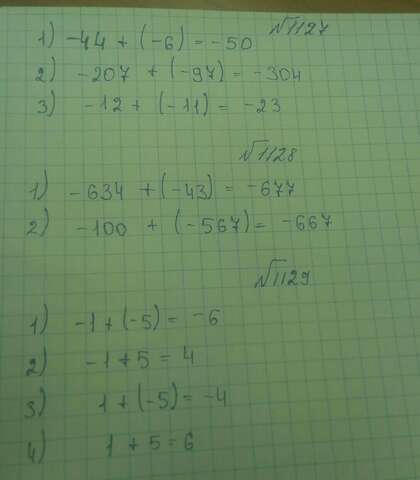 №1127
1) -44 + (-6) = -50
2) -207 + (-97) = -304
3) -12 + (-11) = -23
№1128
1) -634 + (-43) = -677
2) -100 + (-567) = -667
№1129
1) -1 + (-5) = -6
2) -1 + 5 = 4
3) 1 + (-5) = -4
4) 1 + 5 = 6